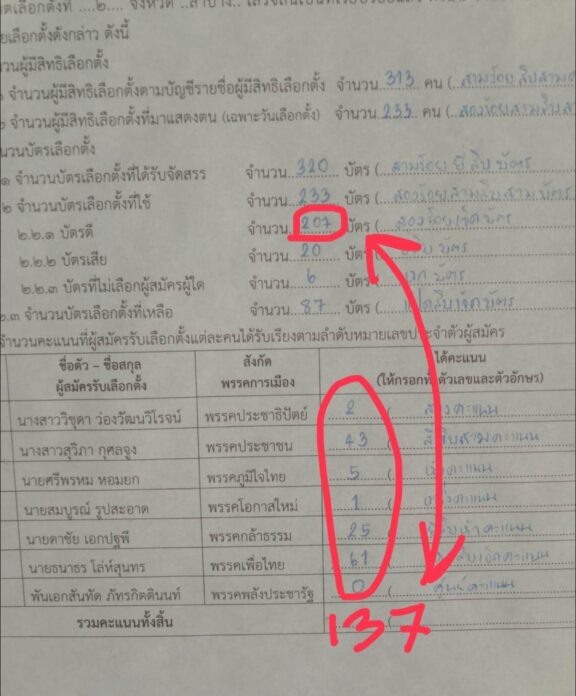 เลือกตั้งที่ ....๒.... จังหวัด ..ลำปาง..
ยเลือกตั้งดังกล่าว ดังนี้
วนผู้มีสิทธิเลือกตั้ง
จำนวนผู้มีสิทธิเลือกตั้งตามบัญชีรายชื่อผู้มีสิทธิเลือกตั้ง จำนวน 313 คน ( สามร้อยสิบสาม
จำนวนผู้มีสิทธิเลือกตั้งที่มาแสดงตน (เฉพาะวันเลือกตั้ง) จำนวน 233 คน ( สองร้อยสามสิบส
นวนบัตรเลือกตั้ง
๑ จำนวนบัตรเลือกตั้งที่ได้รับจัดสรร จำนวน 320 บัตร ( สามร้อยยี่สิบบัตร
๒ จำนวนบัตรเลือกตั้งที่ใช้ จำนวน 233 บัตร ( สองร้อยสามสิบสามบัตร
๒.๒.๑ บัตรดี จำนวน 207 บัตร ( สองร้อยเจ็ดบัตร
๒.๒.๒ บัตรเสีย จำนวน 20 บัตร บัตร
๒.๒.๓ บัตรที่ไม่เลือกผู้สมัครผู้ใด จำนวน 6 บัตร ( บัตร
๒.๓ จำนวนบัตรเลือกตั้งที่เหลือ จำนวน 87 บัตร ( แปดสิบเจ็ดบัตร
จำนวนคะแนนที่ผู้สมัครรับเลือกตั้งแต่ละคนได้รับเรียงตามลำดับหมายเลขประจำตัวผู้สมัคร
ชื่อตัว - ชื่อสกุล ผู้สมัครรับเลือกตั้ง สังกัด พรรคการเมือง ได้คะแนน (ให้กรอกทั้งตัวเลขและตัวอักษร)
นางสาววิชุดา ว่องวัฒนวิโรจน์ พรรคประชาธิปัตย์ 2 ( สองคะแนน
นางสาวสุวิภา กุศลจูง พรรคประชาชน 43 ( สี่สิบสามคะแนน
นายศรีพรหม หอมยก พรรคภูมิใจไทย 5 ( ห้าคะแนน
นายสมบูรณ์ รูปสะอาด พรรคโอกาสใหม่ 1 ( หนึ่งคะแนน
นายดาชัย เอกปฐพี พรรคกล้าธรรม 25 ( ยี่สิบห้าคะแนน
นายธนาธร โล่ห์สุนทร พรรคเพื่อไทย 61 สิบเอ็ดคะแนน
พันเอกสันทัด ภัทรกิตตินนท์ พรรคพลังประชารัฐ 0 ( ศูนย์คะแนน
รวมคะแนนทั้งสิ้น 137